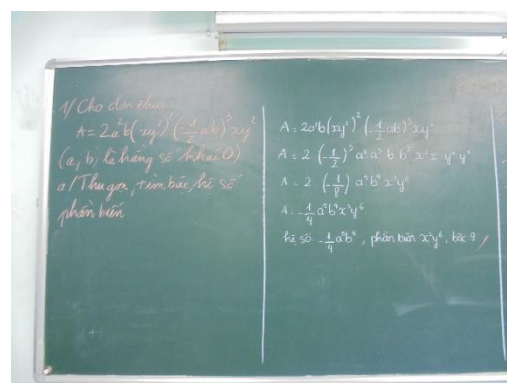 1/ Cho đơn thức
A = 2a²b(xy²)²(-1/2 ab)³xy²
(a, b là hằng số khác 0)
a/ Thu gọn, tìm bậc, hệ số
phần biến
A = 2a²b(xy²)²(-1/2 ab)³xy²
A = 2 (-1/2)³ a² a³ b b³ x² x y⁴ y²
A = 2 (-1/8) a⁵b⁴ x³y⁶
A = -1/4 a⁵b⁴x³y⁶
hệ số -1/4 a⁵b⁴, phần biến x³y⁶, bậc 9